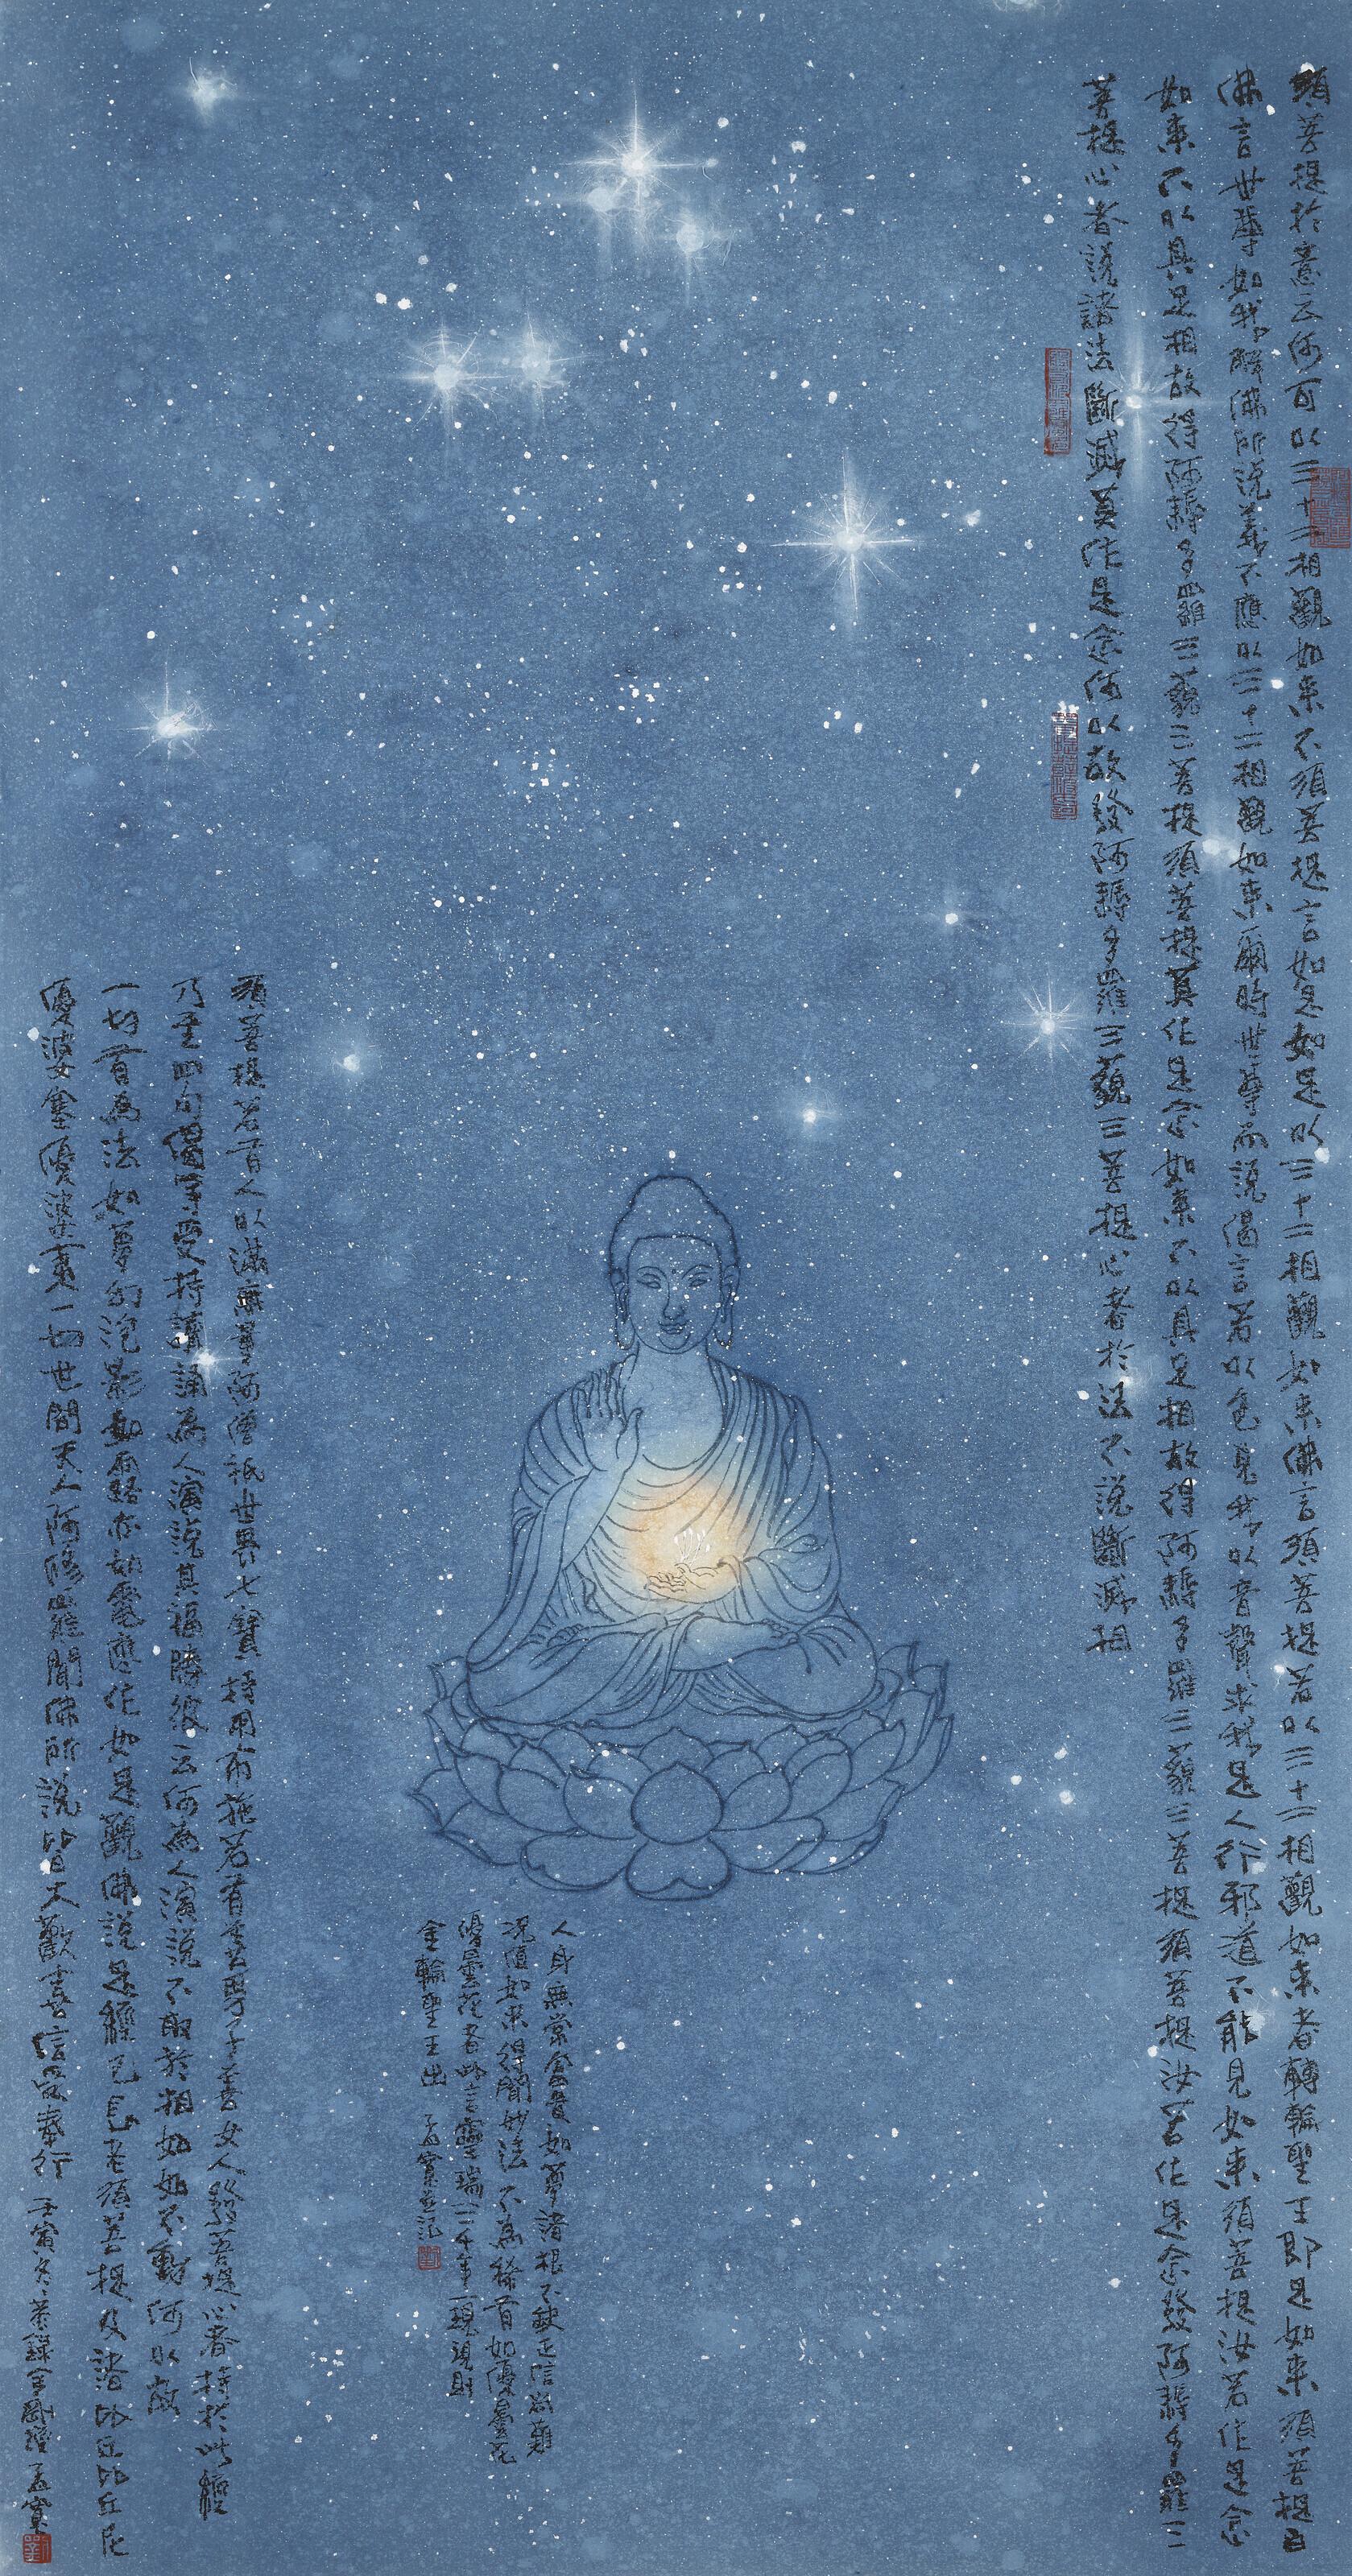 須菩提於意云何可以三十二相觀如來不須菩提言如是如是以三十二相觀如來佛言須菩提若以三十二相觀如來者轉輪聖王即是如來須菩提白
佛言世尊如我解佛所說義不應以三十二相觀如來爾時世尊而說偈言若以色見我以音聲求我是人行邪道不能見如來須菩提汝若作是念
如來不以具足相故得阿耨多羅三藐三菩提須菩提莫作是念如來不以具足相故得阿耨多羅三藐三菩提須菩提汝若作是念發阿耨多羅三
菩提心者說諸法斷滅莫作是念何以故發阿耨多羅三藐三菩提心者於法不說斷滅相
須菩提若有人以滿無量阿僧祇世界七寶持用布施若有善男子善女人發菩提心者持於此經
乃至四句偈等受持讀誦為人演說其福勝彼云何為人演說不取於相如如不動何以故
一切有為法如夢幻泡影如露亦如電應作如是觀佛說是經已長老須菩提及諸比丘比丘尼
優婆塞優婆夷一切世間天人阿修羅聞佛所說皆大歡喜信受奉行 壬寅冬恭錄金剛經 孟寬
人身無常富貴如夢諸根不缺正信尚難
況值如來得聞妙法不為稀有如優曇花
優曇花者此言靈瑞三千年一現現則
金輪聖王出 孟寬並記